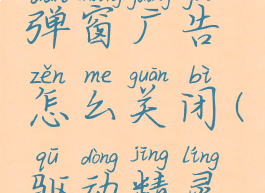 弹窗广告
zěn me guān bì
怎么关闭(
qū dòng jīng líng
驱动精灵